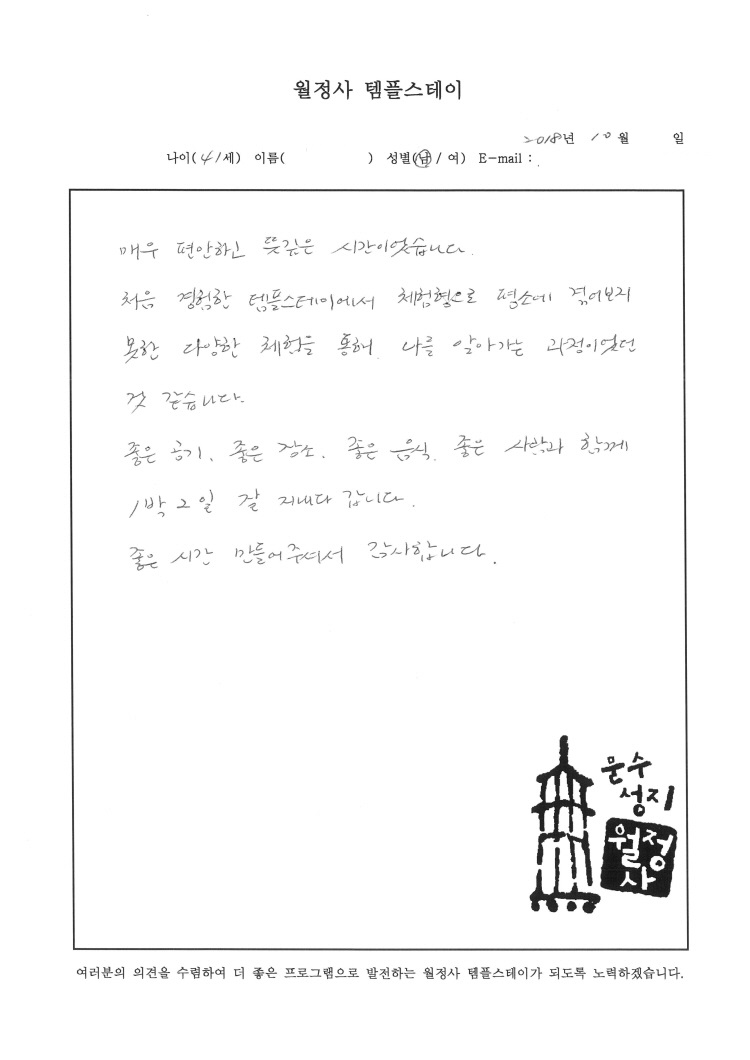 월정사 템플스테이
2018년 10월 일
나이(41세) 이름( ) 성별(남/여) E-mail :
매우 편안하고 뜻깊은 시간이었습니다.
처음 경험한 템플스테이에서 체험형으로 평소에 겪어보지
못한 다양한 체험을 통해 나를 알아가는 과정이었던
것 같습니다.
좋은 공기, 좋은 장소, 좋은 음식, 좋은 사람과 함께
1박 2일 잘 지내다 갑니다.
좋은 시간 만들어주셔서 감사합니다.
문수
성지
월정
사
여러분의 의견을 수렴하여 더 좋은 프로그램으로 발전하는 월정사 템플스테이가 되도록 노력하겠습니다.